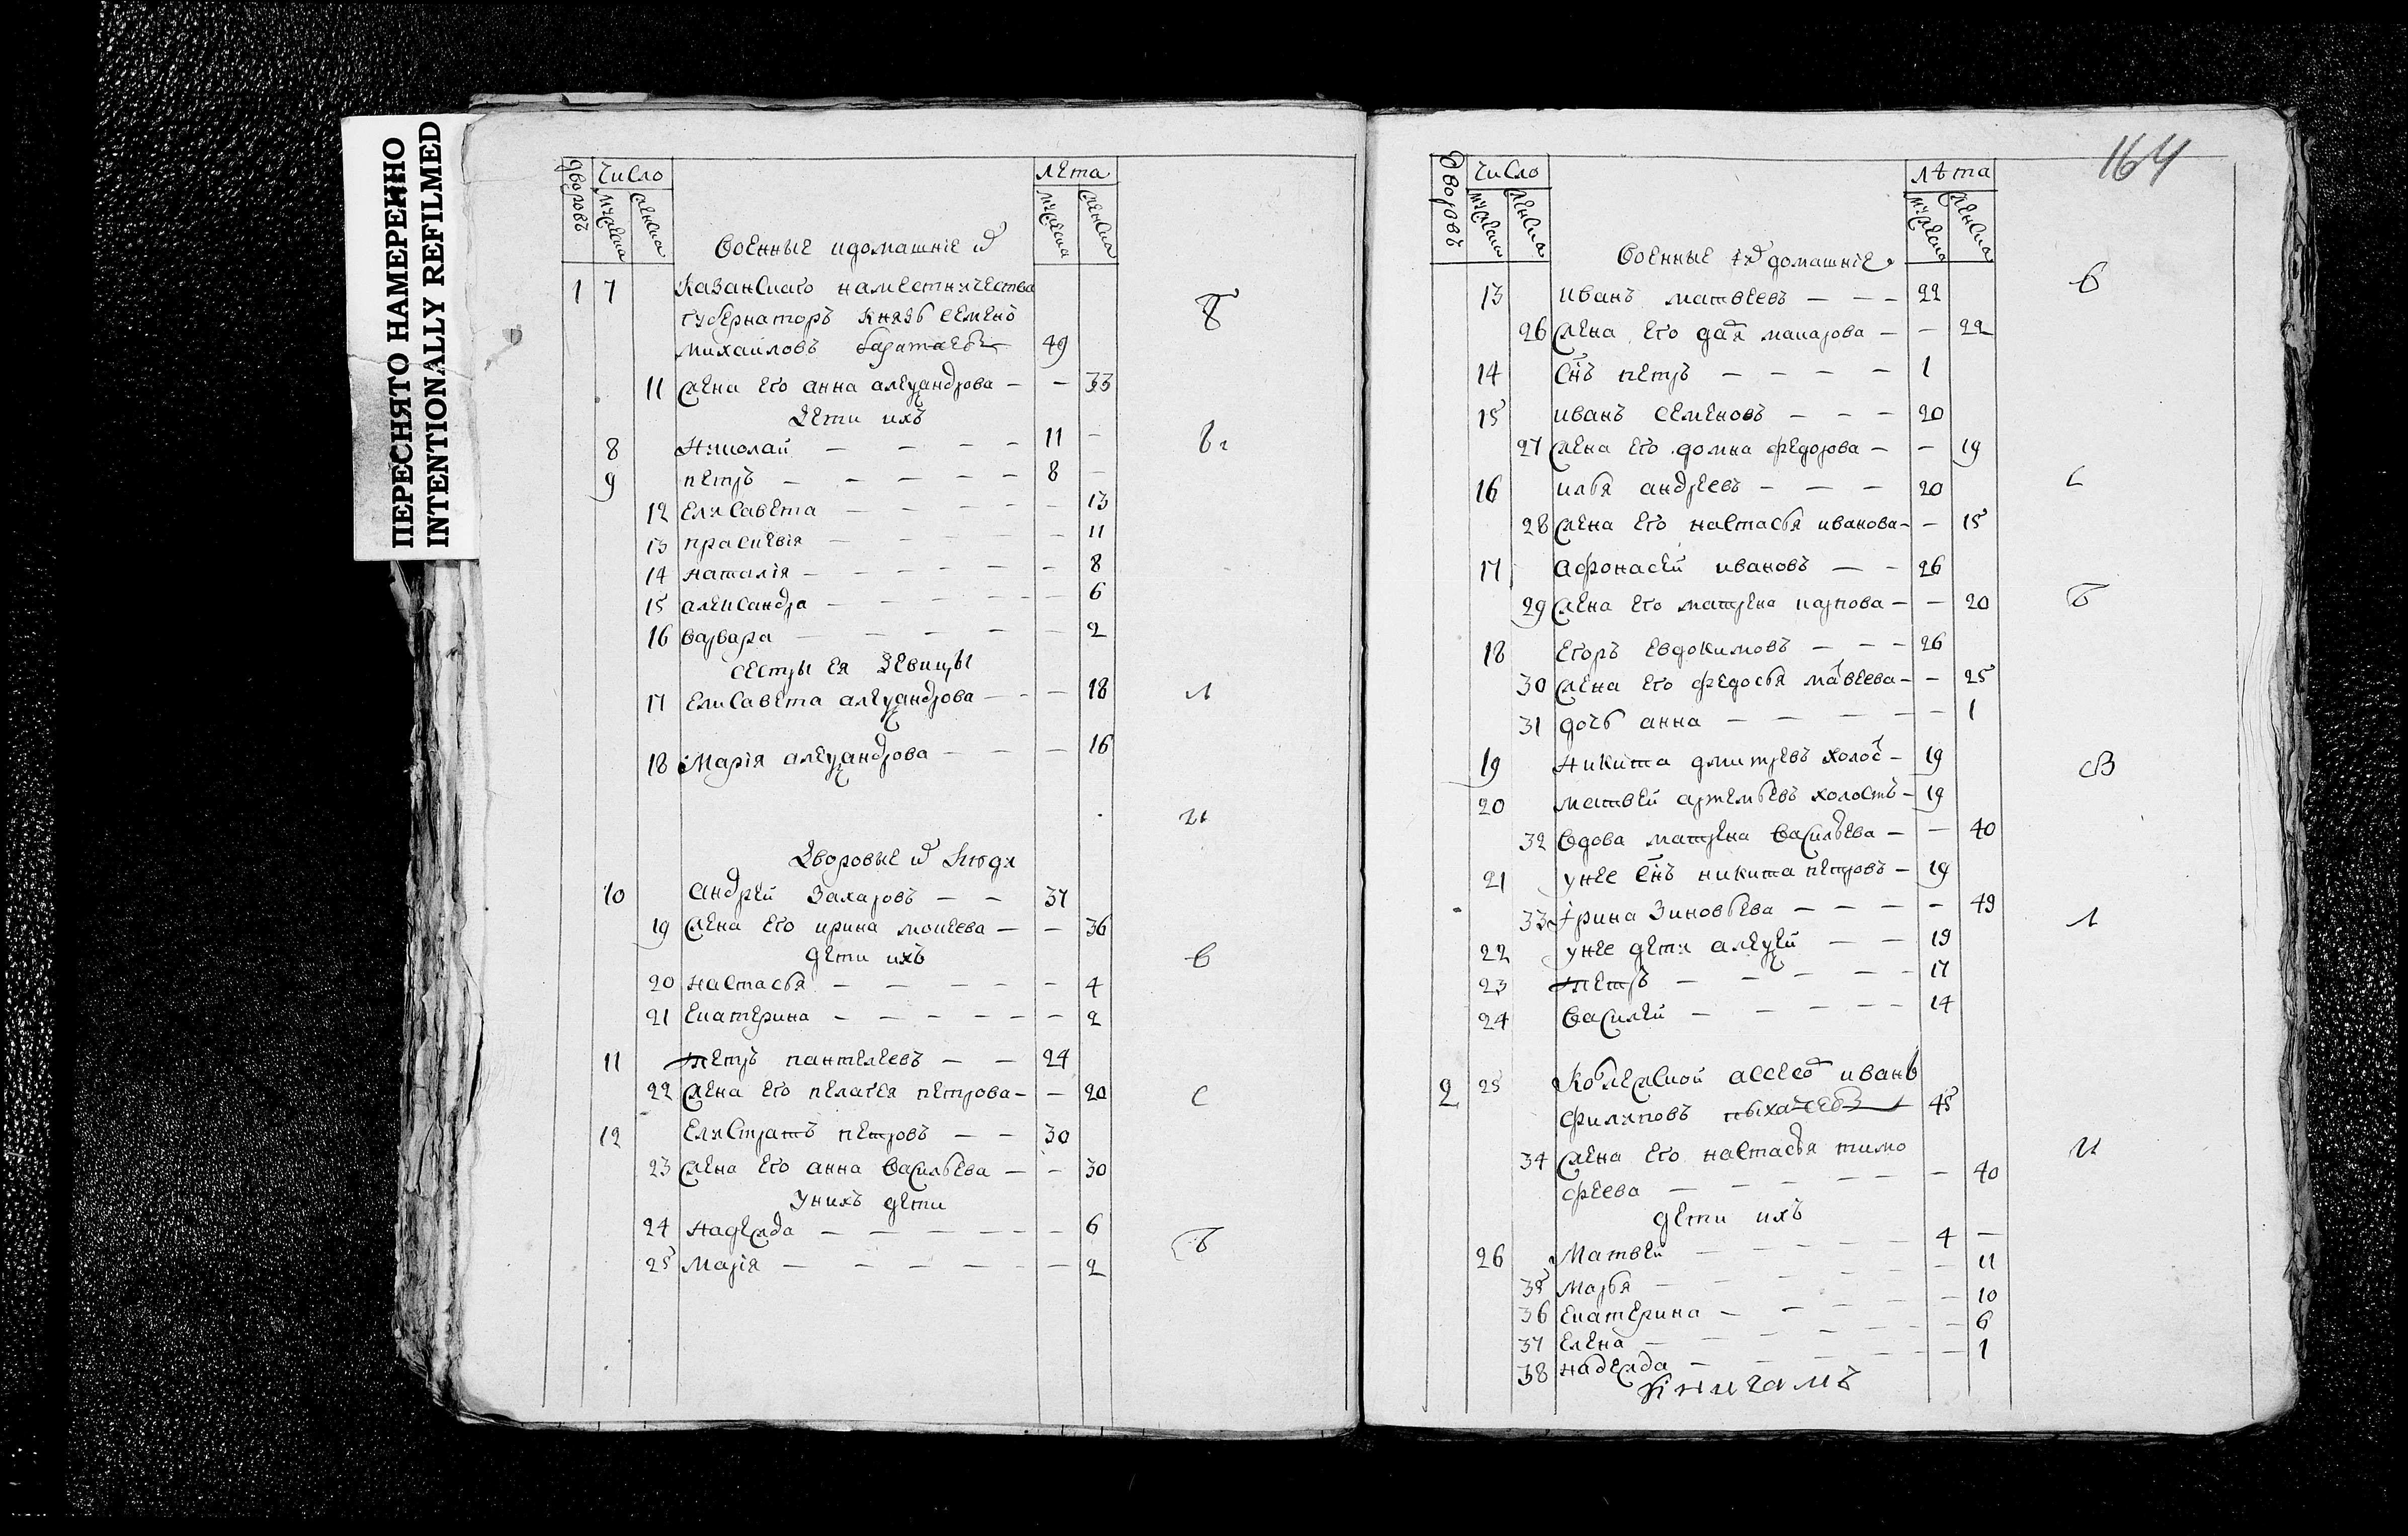 ПЕРЕСНЯТО НАМЕРЕННО
INTENTIONALLY REFILMED
дворовъ число лета
мужеска женска мужеска женска
Военные и домашніе
1 7 Казанскаго наместничества
губернаторъ князь семенъ
михаиловъ баратаевъ 49
11 жена его анна алеѯандрова — — 33
Дети ихъ
8 Николай — — — — 11 —
9 петръ — — — — — 8 —
12 Елисавета — — — — — 13
13 праскевія — — — — — 11
14 наталія — — — — — — 8
15 александра — — — — — — 6
16 варвара — — — — — 2
сестры ея Девицы
17 Елисавета алеѯандрова — — — 18
18 Марія алеѯандрова — — — 16
Дворовые люди
10 андрей Захаровъ — — 37
19 жена его ирина мокеева — — 36
дети ихъ
20 настасья — — — — — — 4
21 Екатерина — — — — — — 2
11 петръ пантелеевъ — — 24
22 жена его пелагея петрова — — 20
12 Елистратъ петровъ — — 30
23 жена его анна васильева — — 30
У нихъ дети
24 надежда — — — — — — 6
25 Марія — — — — — — 2
164
дворовъ число лѣта
мужеска женска мужеска женска
Военные домашніе
13 иванъ матвеевъ — — — 22
26 жена его дая макарова — — 22
14 снъ петръ — — — — 1
15 иванъ семеновъ — — — 20
27 жена его домна федорова — — 19
16 илья андреевъ — — — 20
28 жена его настасья иванова — — 15
17 афонасей ивановъ — — 26
29 жена его матрена карпова — — 20
18 егоръ евдокимовъ — — — 26
30 жена его федосья матвеева — — 25
31 дочь анна — — — — — 1
19 никита дмитревъ холост — 19
20 матвей артемьевъ холостъ — 19
32 вдова матрена васильева — — 40
21 у нее снъ никита петровъ — 19
33 Ирина Зиновьева — — — — — 49
22 у нее дети алеѯей — — 19
23 петръ — — — — — 17
24 василей — — — — — 14
2 25 Колежской ассесо иванъ
филиповъ пыхачевъ 45
34 жена его настасья тимо
феева — — — — — — 40
дети ихъ
26 Матвей — — — — — 4 —
35 марья — — — — — — 11
36 екатерина — — — — — 10
37 елена — — — — — — 6
38 надежда — — — — — — 1